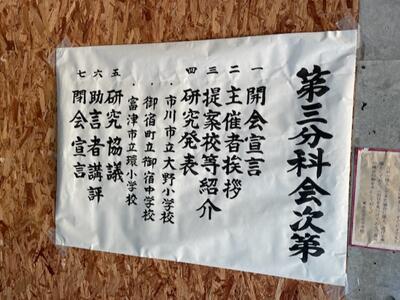 第三分科会次第
一 開会宣言
二 主催者挨拶
三 提案校等紹介
四 研究発表
・市川市立大野小学校
・御宿町立御宿中学校
・富津市立環小学校
五 研究協議
六 助言者講評
七 閉会宣言